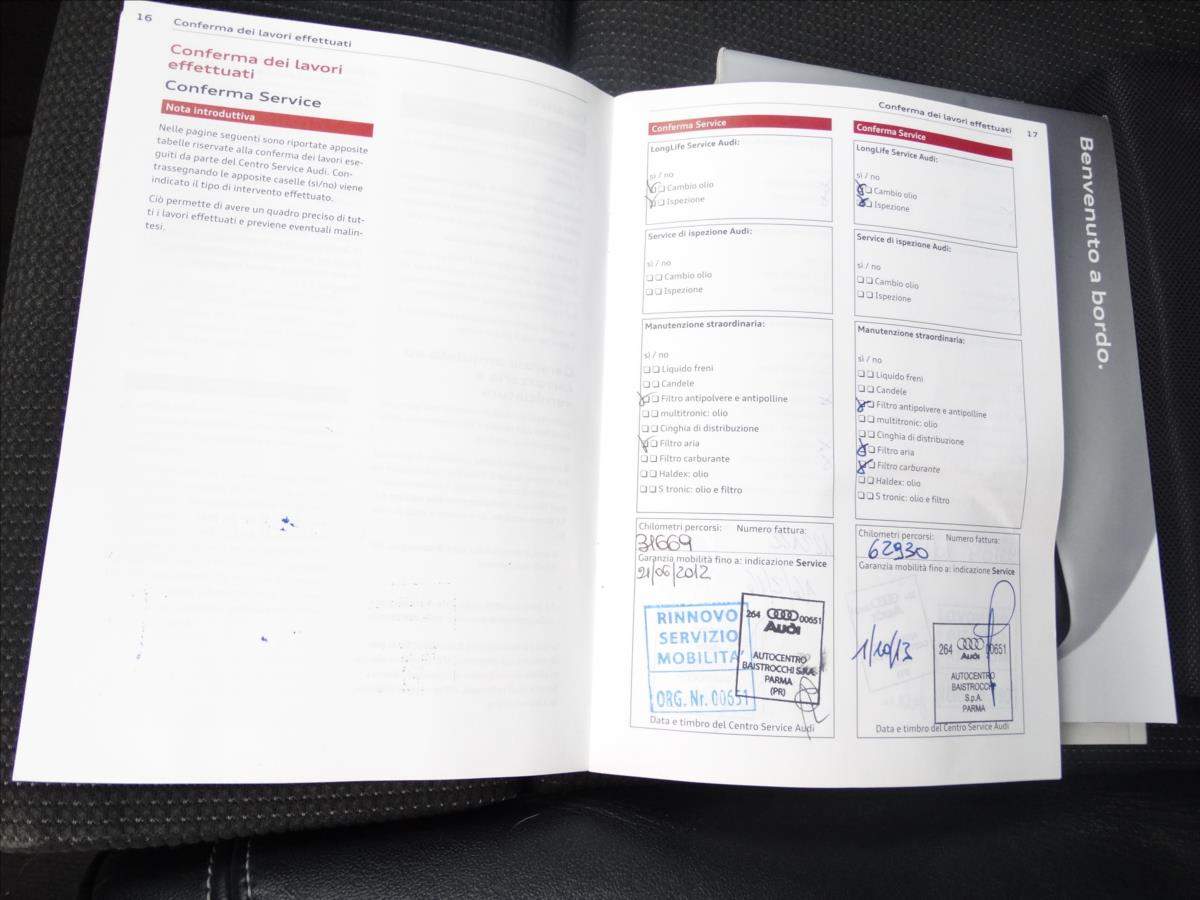 16
Conferma dei lavori effettuati
Conferma dei lavori
effettuati
Conferma Service
Nota introduttiva
Nelle pagine seguenti sono riportate apposite
tabelle riservate alla conferma dei lavori ese-
guiti da parte del Centro Service Audi. Con-
trassegnando le apposite caselle (sì/no) viene
indicato il tipo di intervento effettuato.
Ciò permette di avere un quadro preciso di tut-
ti i lavori effettuati e previene eventuali malin-
tesi.
Conferma dei lavori effettuati
17
Conferma Service
LongLife Service Audi:
sì / no
Cambio olio
Ispezione
Service di ispezione Audi:
sì / no
Cambio olio
Ispezione
Manutenzione straordinaria:
sì / no
Liquido freni
Candele
Filtro antipolvere e antipolline
multitronic: olio
Cinghia di distribuzione
Filtro aria
Filtro carburante
Haldex: olio
S tronic: olio e filtro
Chilometri percorsi: Numero fattura:
31669
Garanzia mobilità fino a: indicazione Service
21/06/2012
RINNOVO
SERVIZIO
MOBILITA'
ORG. Nr. 00651
264 00651
Audi
AUTOCENTRO
BAISTROCCHI S.P.A.
PARMA
(PR)
Data e timbro del Centro Service Audi
Conferma Service
LongLife Service Audi:
sì / no
Cambio olio
Ispezione
Service di ispezione Audi:
sì / no
Cambio olio
Ispezione
Manutenzione straordinaria:
sì / no
Liquido freni
Candele
Filtro antipolvere e antipolline
multitronic: olio
Cinghia di distribuzione
Filtro aria
Filtro carburante
Haldex: olio
S tronic: olio e filtro
Chilometri percorsi: Numero fattura:
62930
Garanzia mobilità fino a: indicazione Service
1/10/13
264 00651
Audi
AUTOCENTRO
BAISTROCCHI
S.p.A.
PARMA
Data e timbro del Centro Service Audi
Benvenuto a bordo.